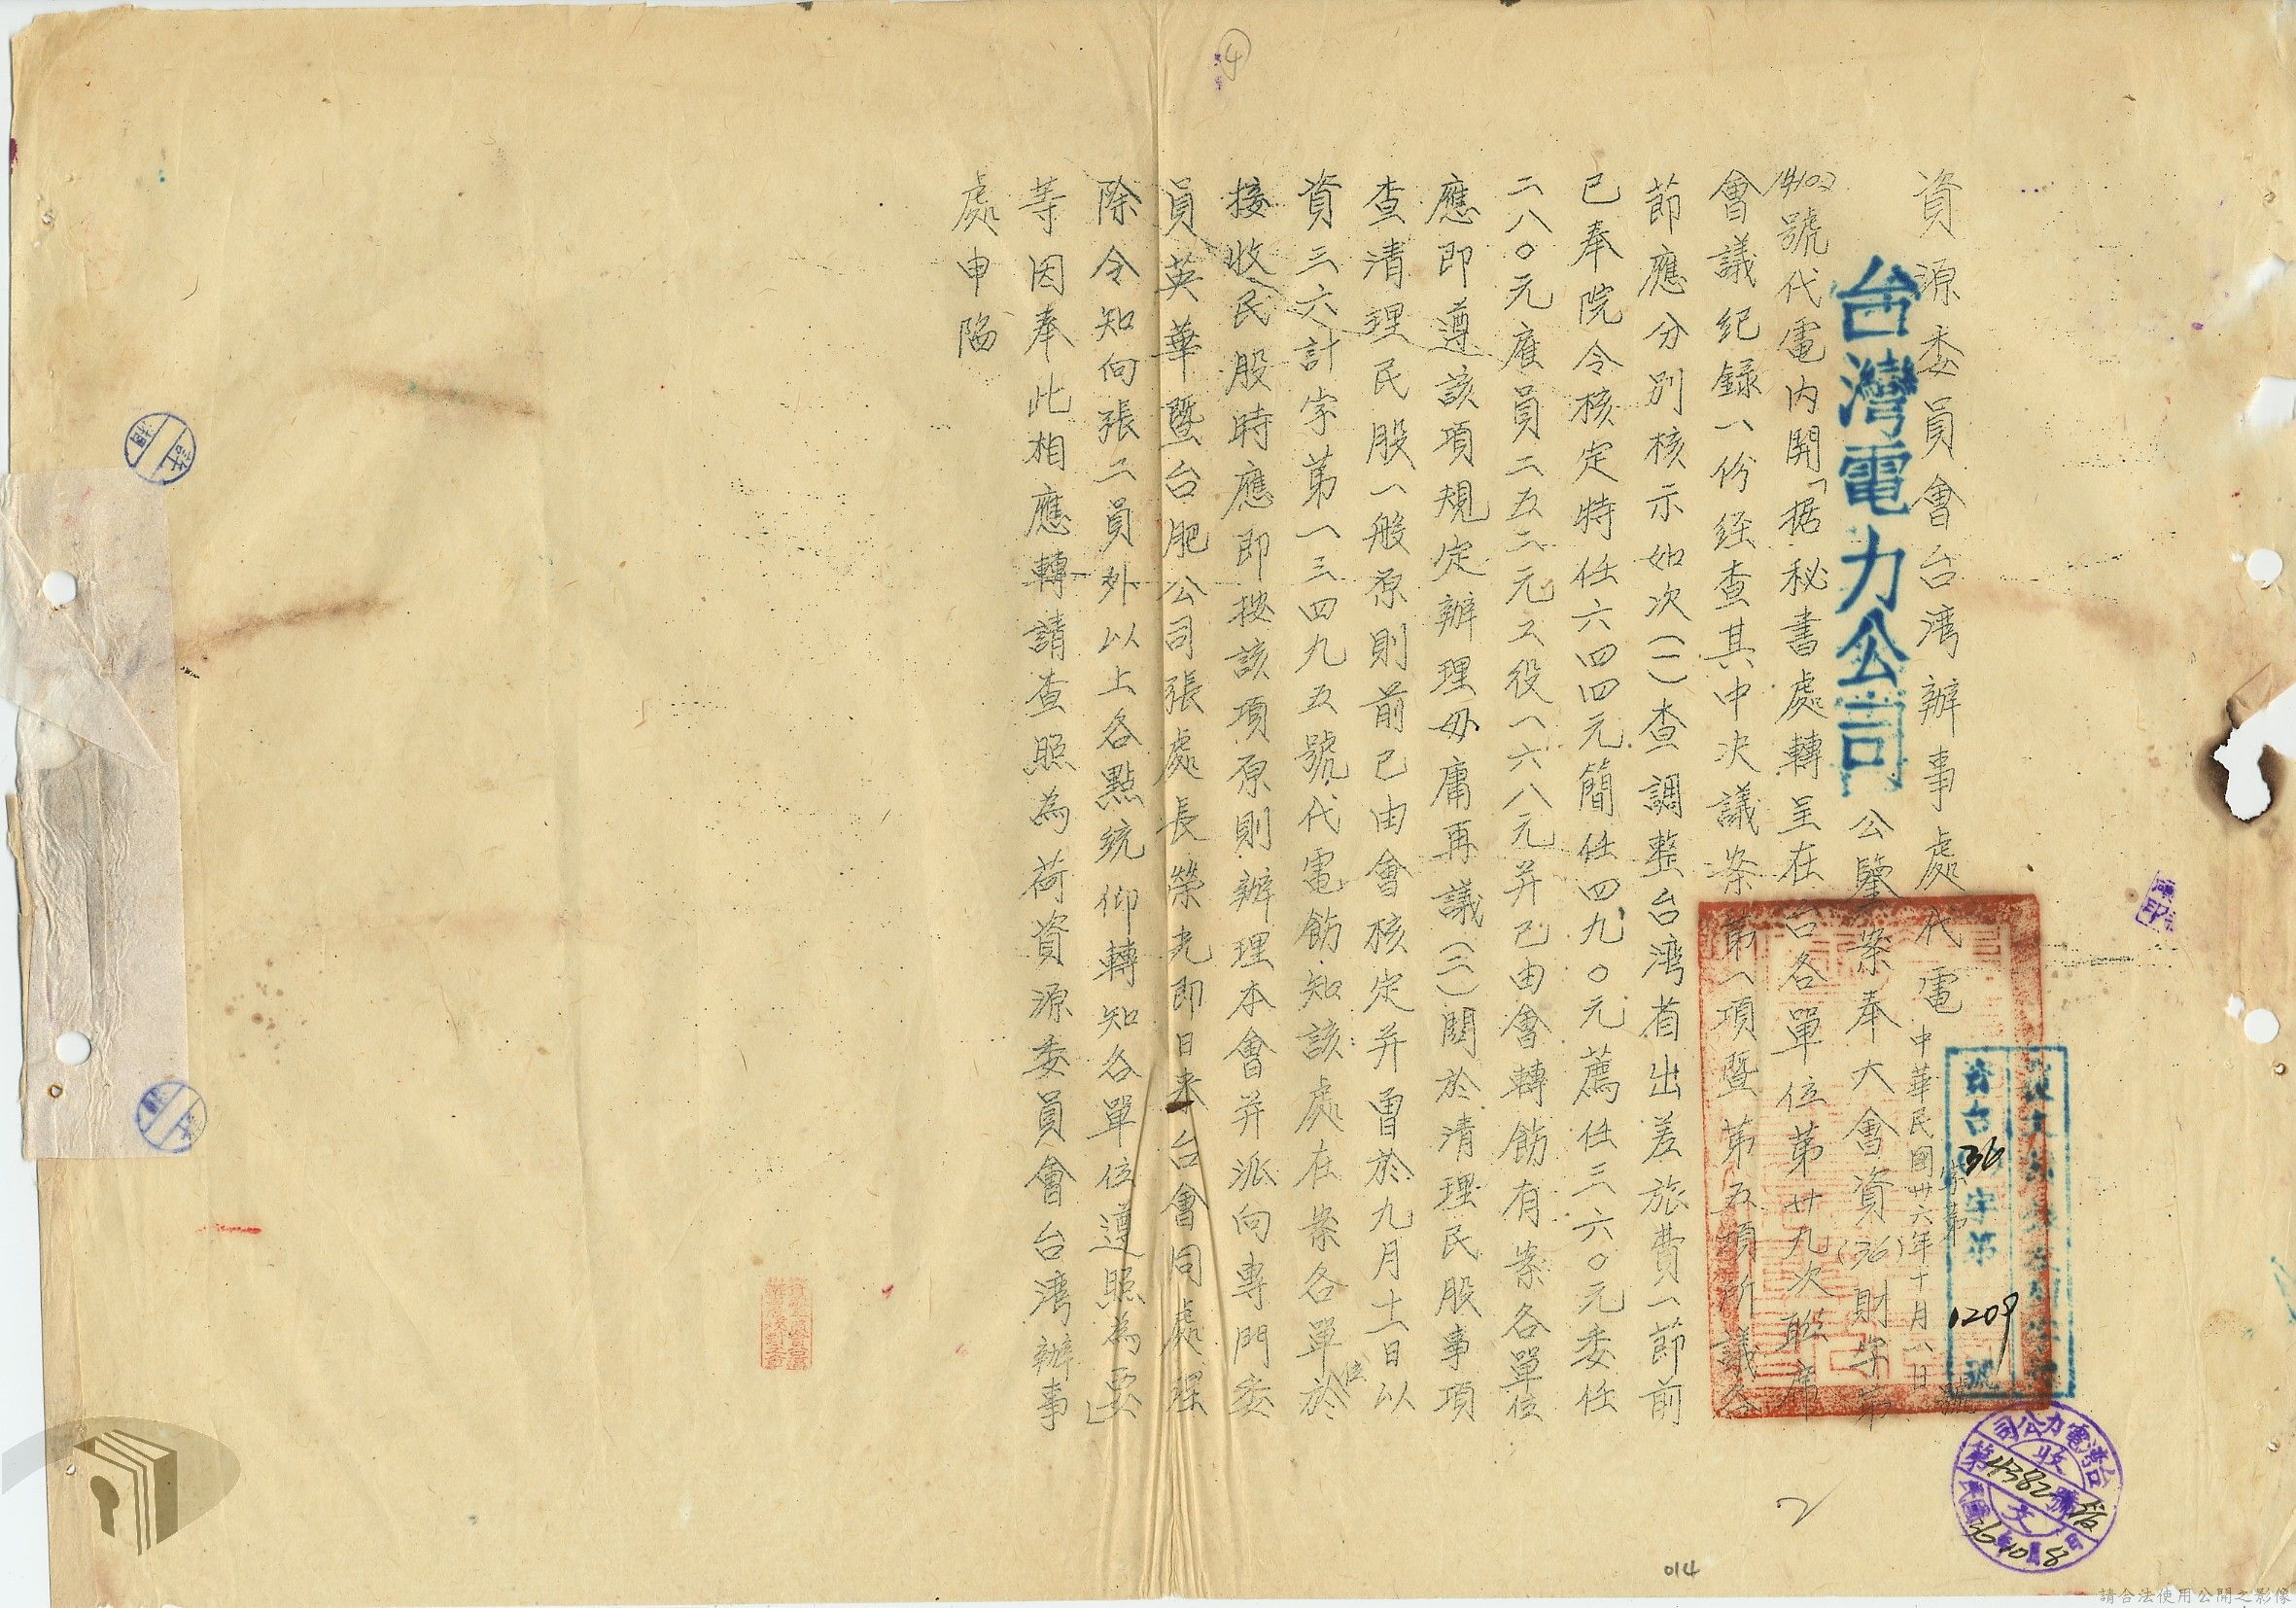 ④
資源委員會台湾辦事處代電
中華民國卅六年十月八日
字第 號
資台36字第1209號
台灣電力公司 公鑒案奉大會資(36)財字第
14102號代電內開「据秘書處轉呈在台各單位第廿九次聯席
會議紀錄一份経查其中決議案第一項暨第五項所議各
節應分別核示如次(一)查調整台湾省出差旅費一節前
已奉院令核定特任六四四元簡任四九〇元薦任三六〇元委任
二八〇元雇員二五二元工役一六八元并已由會轉飭有案各單位
應即遵該項規定辦理毋庸再議(二)關於清理民股事項
查清理民股一般原則前已由會核定并曾於九月十一日以
資三六計字第一三四九五號代電飭知該處在案各單位於
接收民股時應即按該項原則辦理本會并派向專門委
員英華暨台肥公司張處長榮光即日来台會同處理
除令知向張二員外以上各點統仰轉知各單位遵照為要」
等因奉此相應轉請查照為荷資源委員會台湾辦事
處申陥
台灣電力公司
收文
第4382號
民國36年10月8日
014
請合法使用公開之影像